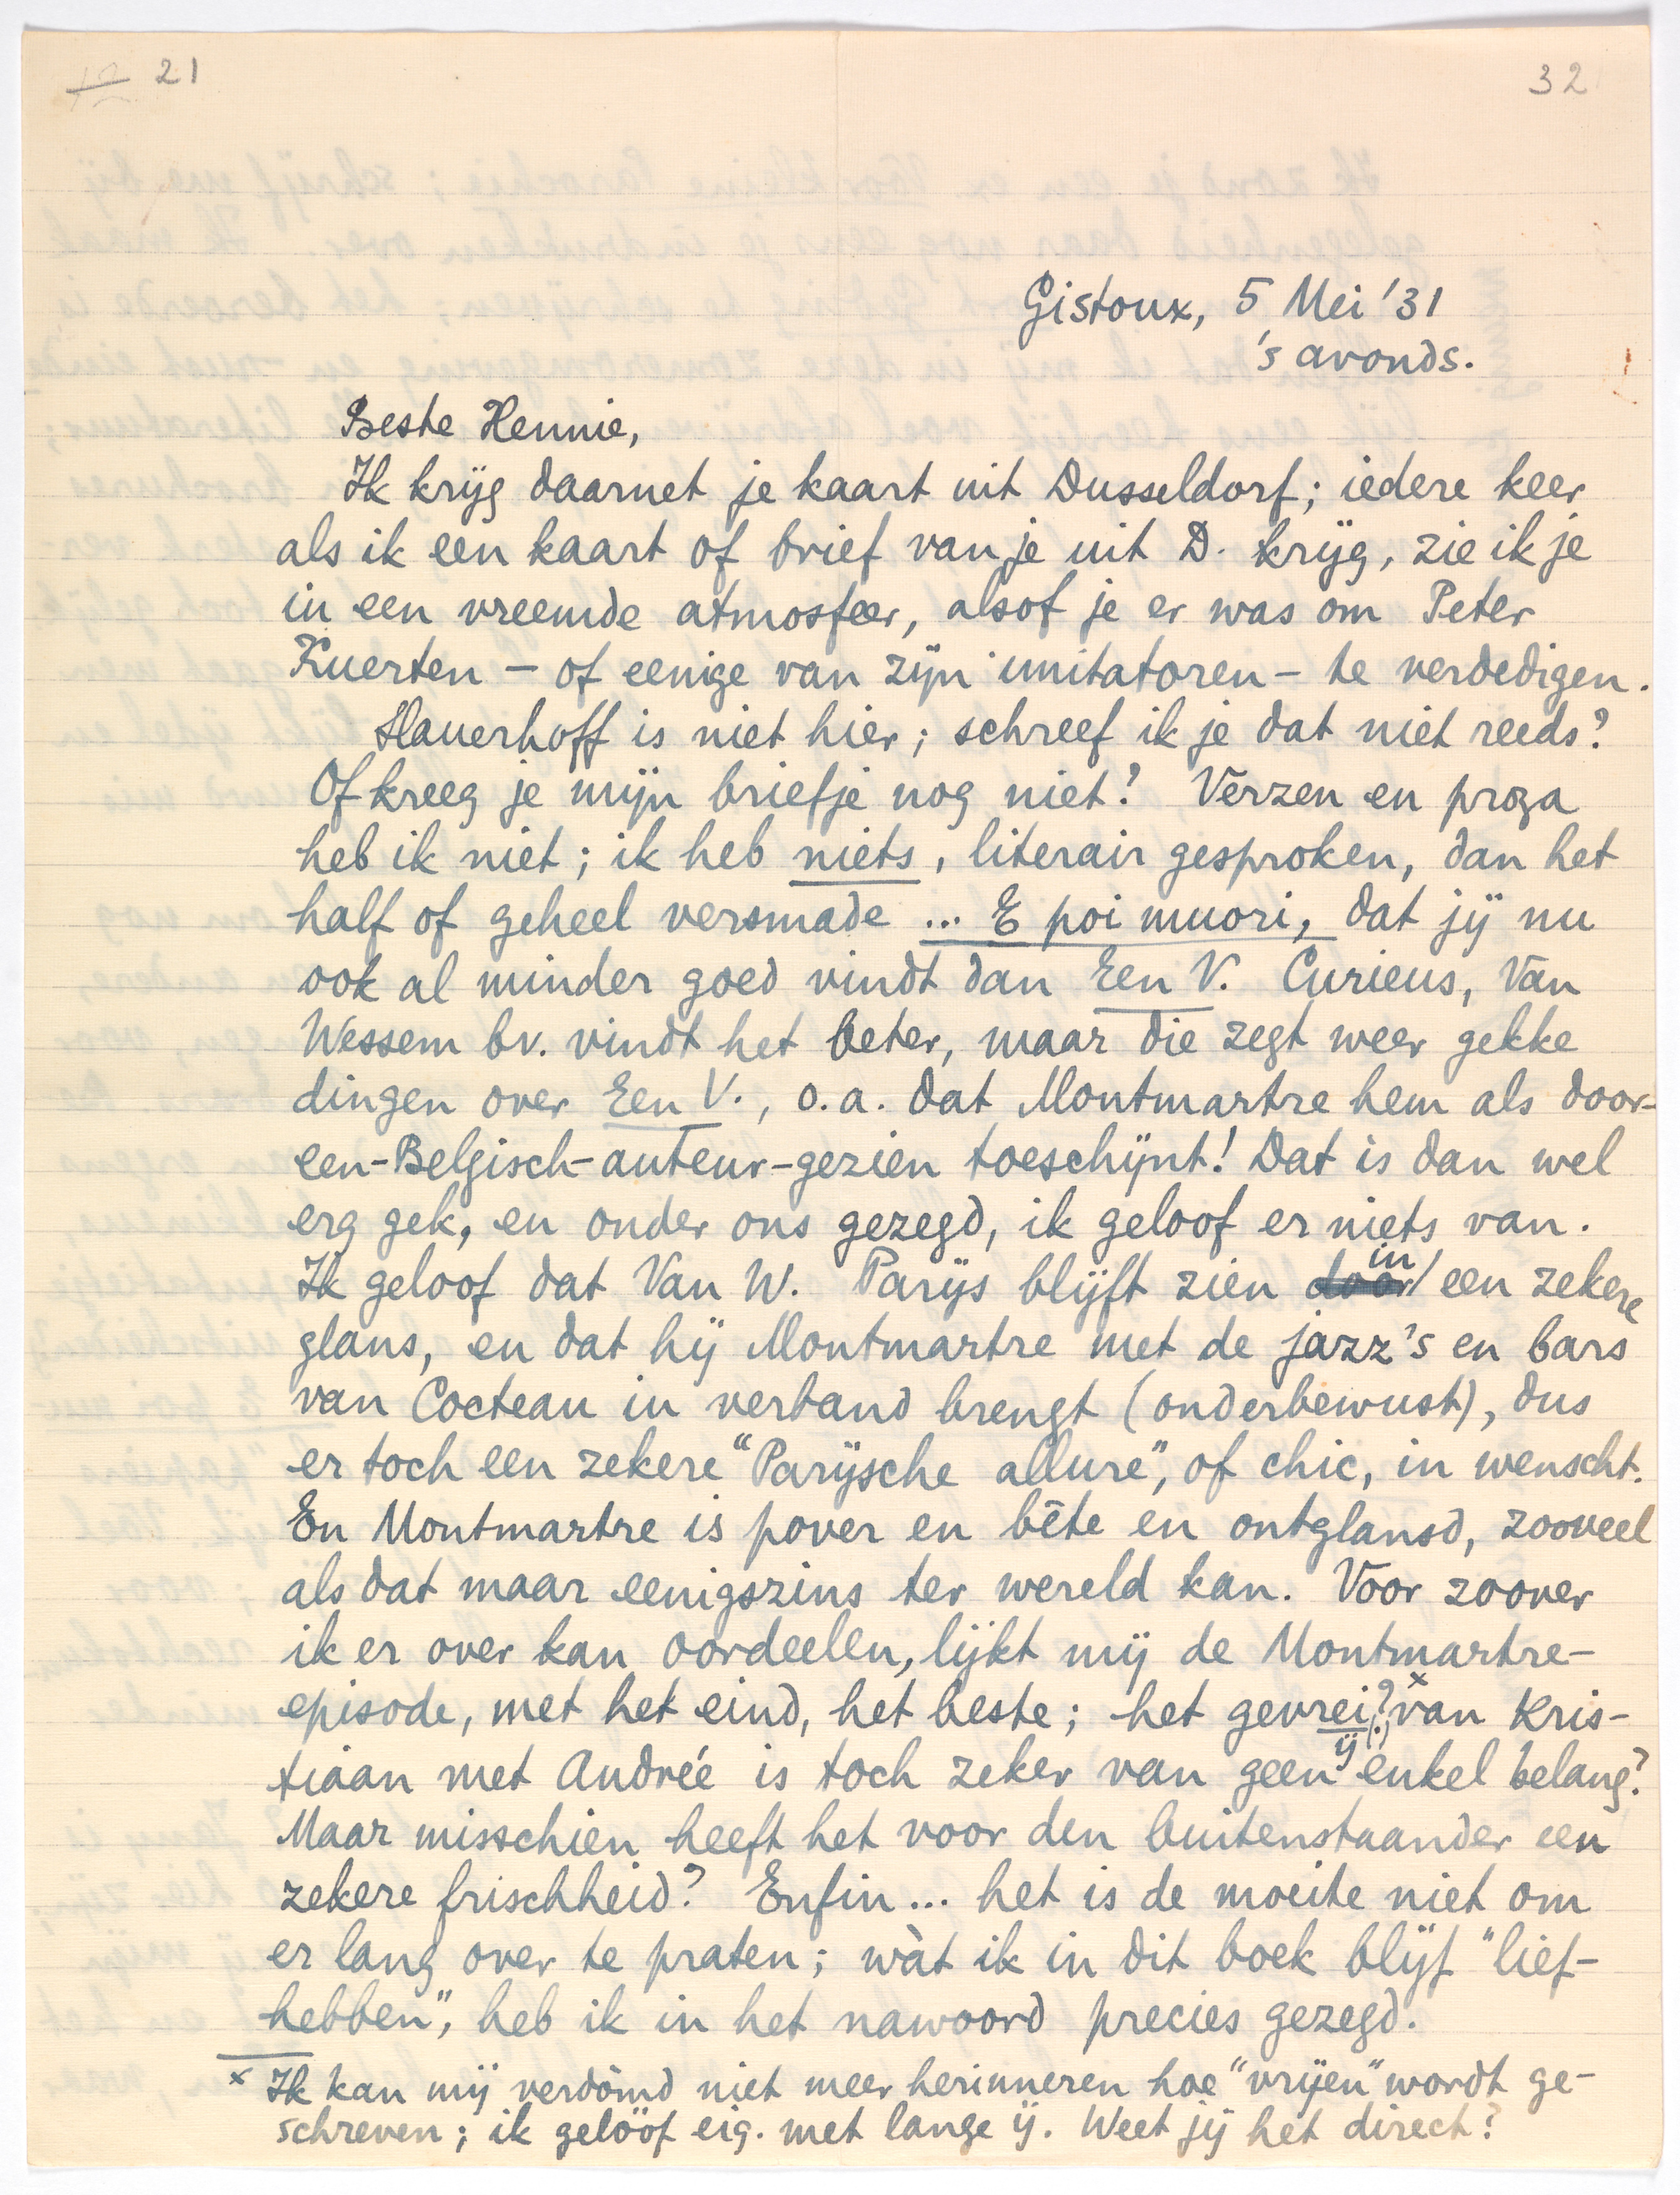 21
32
Gistoux, 5 Mei '31
's avonds.
Beste Hennie,
Ik krijg daarnet je kaart uit Dusseldorf; iedere keer
als ik een kaart of brief van je uit D. krijg, zie ik je
in een vreemde atmosfeer, alsof je er was om Peter
Kuerten – of eenige van zijn imitatoren – te verdedigen.
Slauerhoff is niet hier; schreef ik je dat niet reeds?
Of kreeg je mijn briefje nog niet? Verzen en proza
heb ik niet; ik heb niets, literair gesproken, dan het
half of geheel versmade ... E poi muori, dat jij nu
ook al minder goed vindt dan Een V. Curieus, Van
Wessem bv. vindt het beter, maar die zegt weer gekke
dingen over Een V., o.a. dat Montmartre hem als door-
een-Belgisch-auteur-gezien toeschijnt! Dat is dan wel
erg gek, en onder ons gezegd, ik geloof er niets van.
Ik geloof dat Van W. Parijs blijft zien door in een zekere
glans, en dat hij Montmartre met de jazz's en bars
van Cocteau in verband brengt (onderbewust), dus
er toch een zekere "Parijsche allure", of chic, in wenscht.
En Montmartre is pover en bête en ontglansd, zooveel
als dat maar eenigszins ter wereld kan. Voor zoover
ik er over kan oordeelen, lijkt mij de Montmartre-
episode, met het eind, het beste; het gevrei ij (?) x van Kris-
tiaan met Andrée is toch zeker van geen enkel belang?
Maar misschien heeft het voor den buitenstaander een
zekere frischheid? Enfin... het is de moeite niet om
er lang over te praten; wàt ik in dit boek blijf "lief-
hebben", heb ik in het nawoord precies gezegd.
x Ik kan mij verdòmd niet meer herinneren hoe "vrijen" wordt ge-
schreven; ik gelóóf eig. met lange ij. Weet jij het direct?